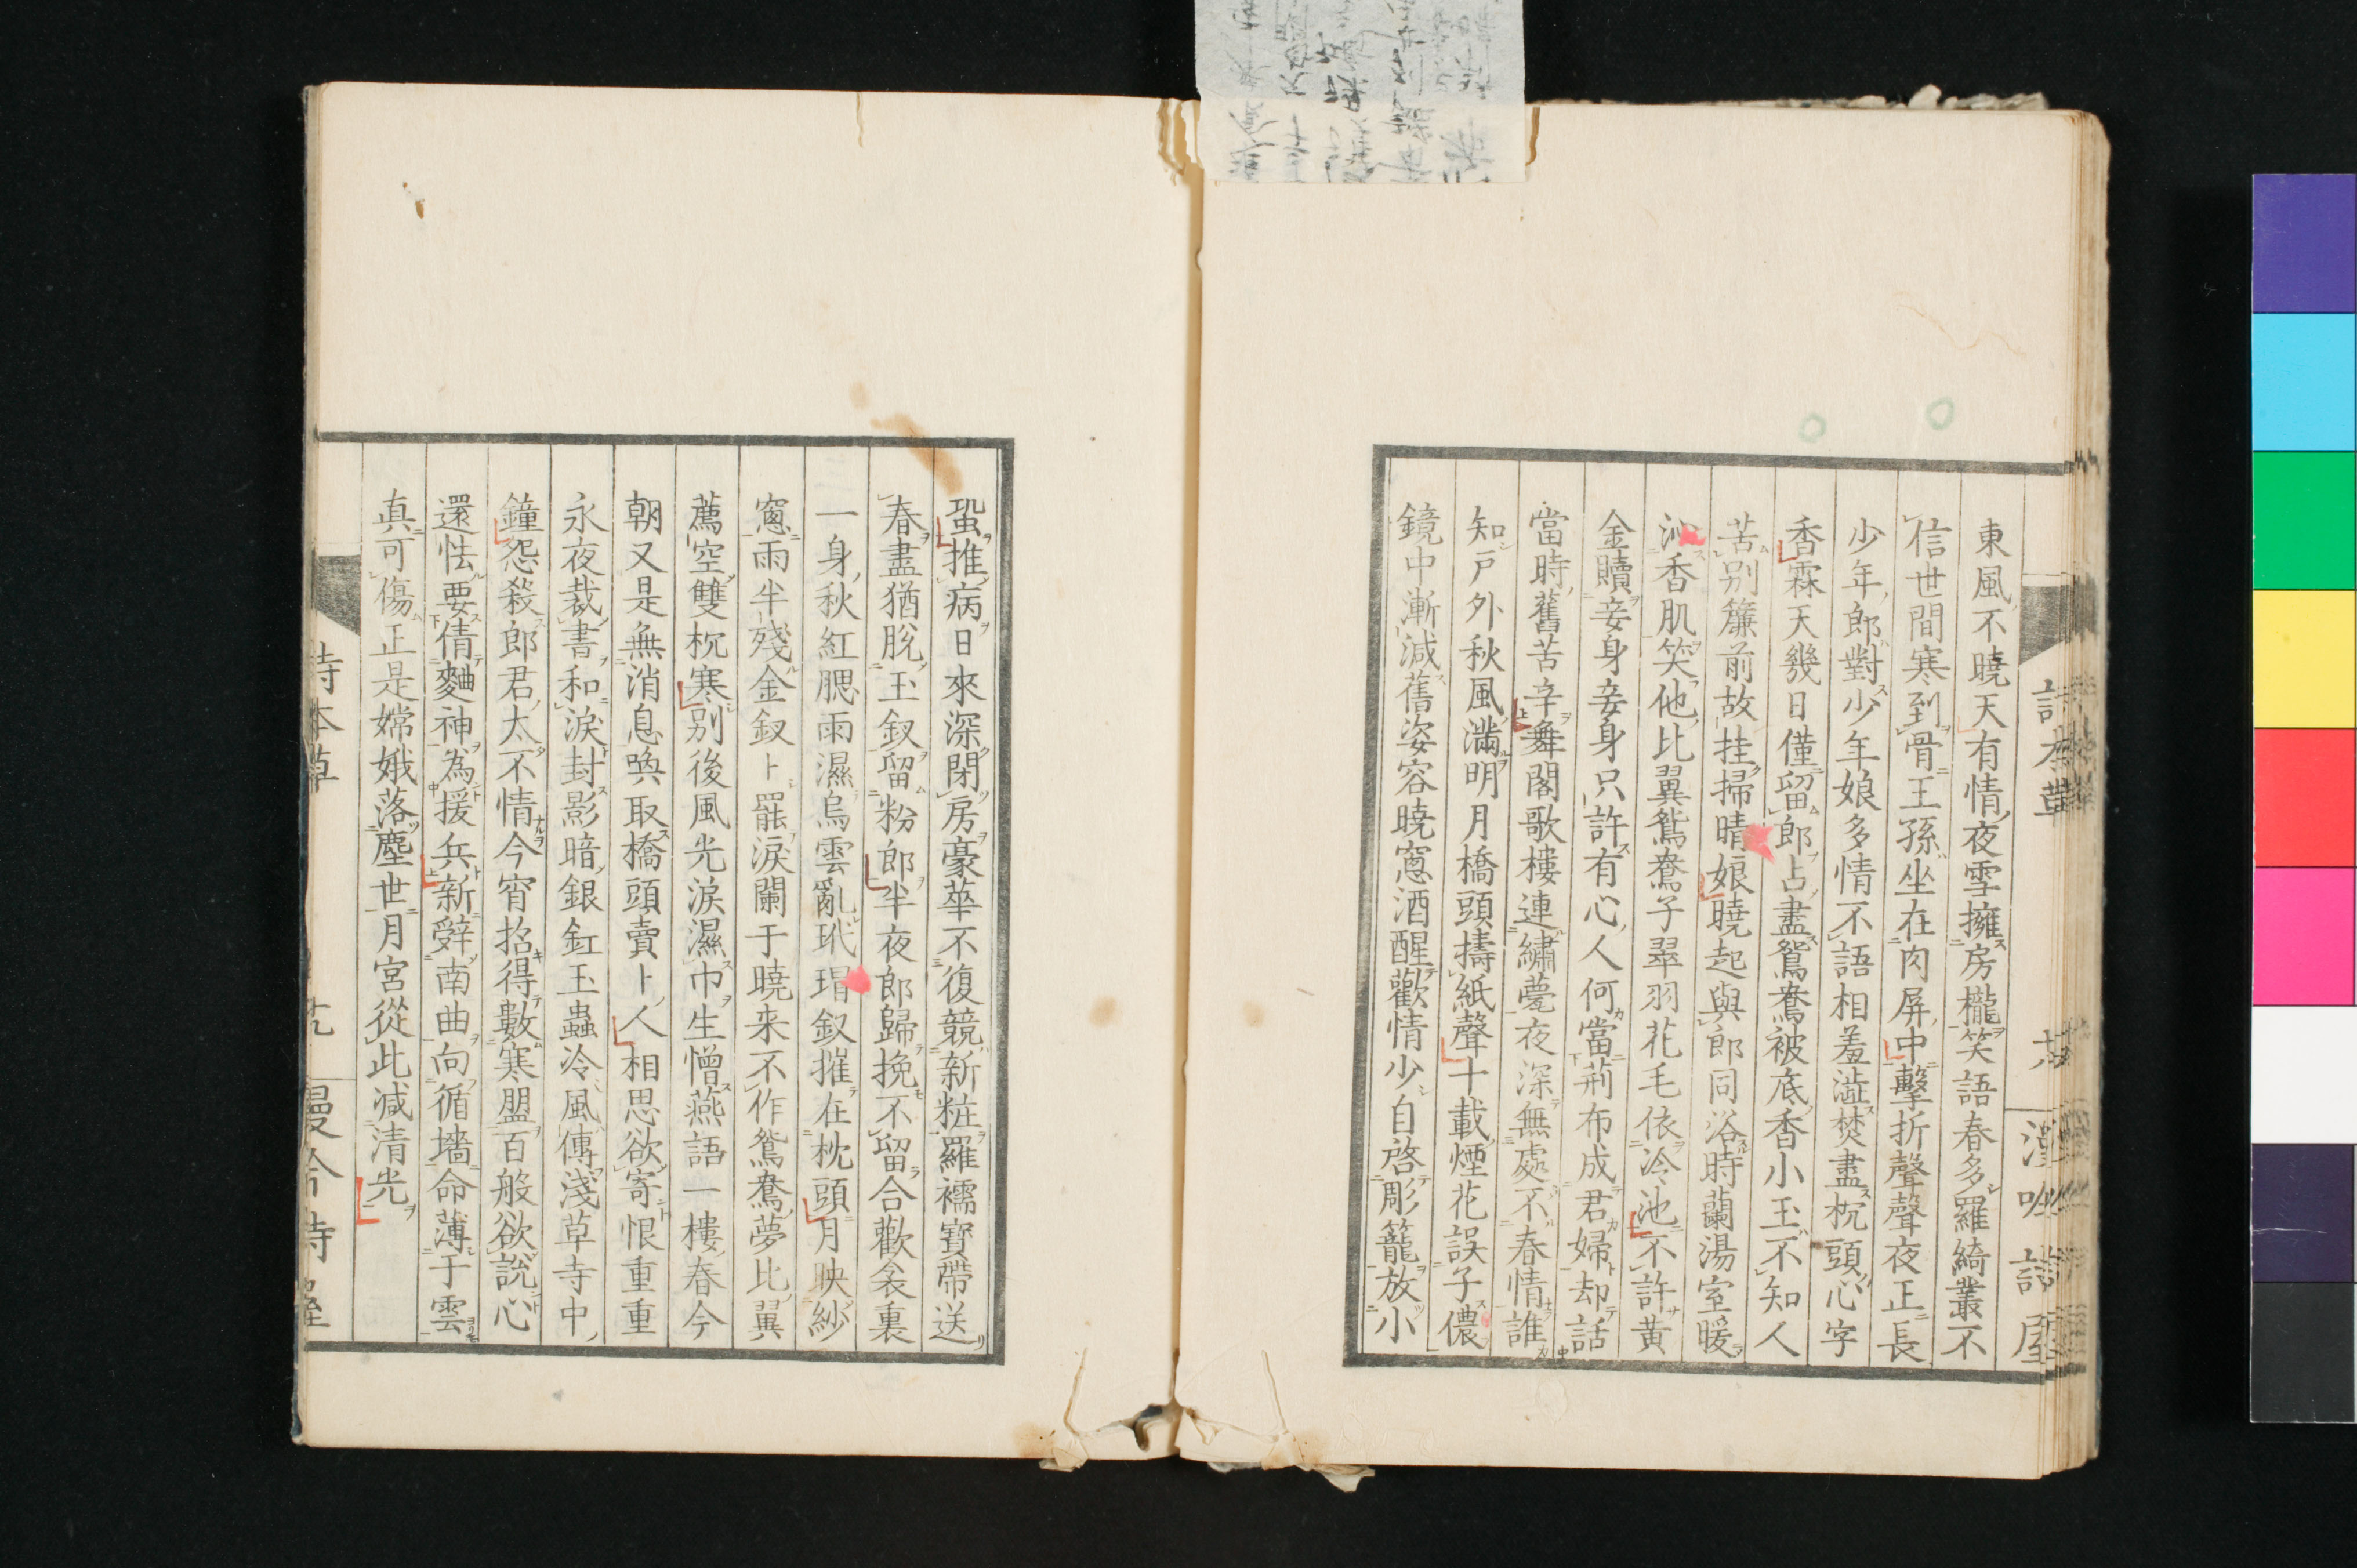 東風不曉天有情夜雪擁房櫳笑語春多羅綺叢不
信世間寒到骨王孫坐在肉屏中擊折聲聲夜正長
少年郎對少年娘多情不語相羞澁焚盡枕頭心字
香霖天幾日僅留郎占盡鴛鴦被底香小玉不知人
苦別簾前故挂掃晴娘曉起與郎同浴時蘭湯室暖
沁香肌笑他比翼鴛鴦子翠羽花毛依冷池不許黃
金贖妾身妾身只許有心人何當荊布成君婦却話
當時舊苦辛舞閣歌樓連繡甍夜深無處不春情誰
知戶外秋風滿明月橋頭擣紙聲十載煙花誤子儂
鏡中漸減舊姿容曉窻酒醒歡情少自啓彫籠放小
蛩推病日來深閉房豪華不復競新粧羅襦寶帶送
春盡猶脫玉釵留粉郎半夜郎歸挽不留合歡衾裏
一身秋紅腮雨濕烏雲亂玳瑁釵摧在枕頭月映紗
窻雨半殘金釵卜罷淚闌于曉来不作鴛鴦夢比翼
薦空雙枕寒別後風光淚濕巾生憎燕語一樓春今
朝又是無消息喚取橋頭賣卜人相思欲寄恨重重
永夜裁書和淚封影暗銀釭玉蟲冷風傳淺草寺中
鐘怨殺郎君太不情今宵招得數寒盟百般欲說心
還怯要倩麯神為援兵新辤南曲向循墻命薄于雲
真可傷正是嫦娥落塵世月宮從此減清光